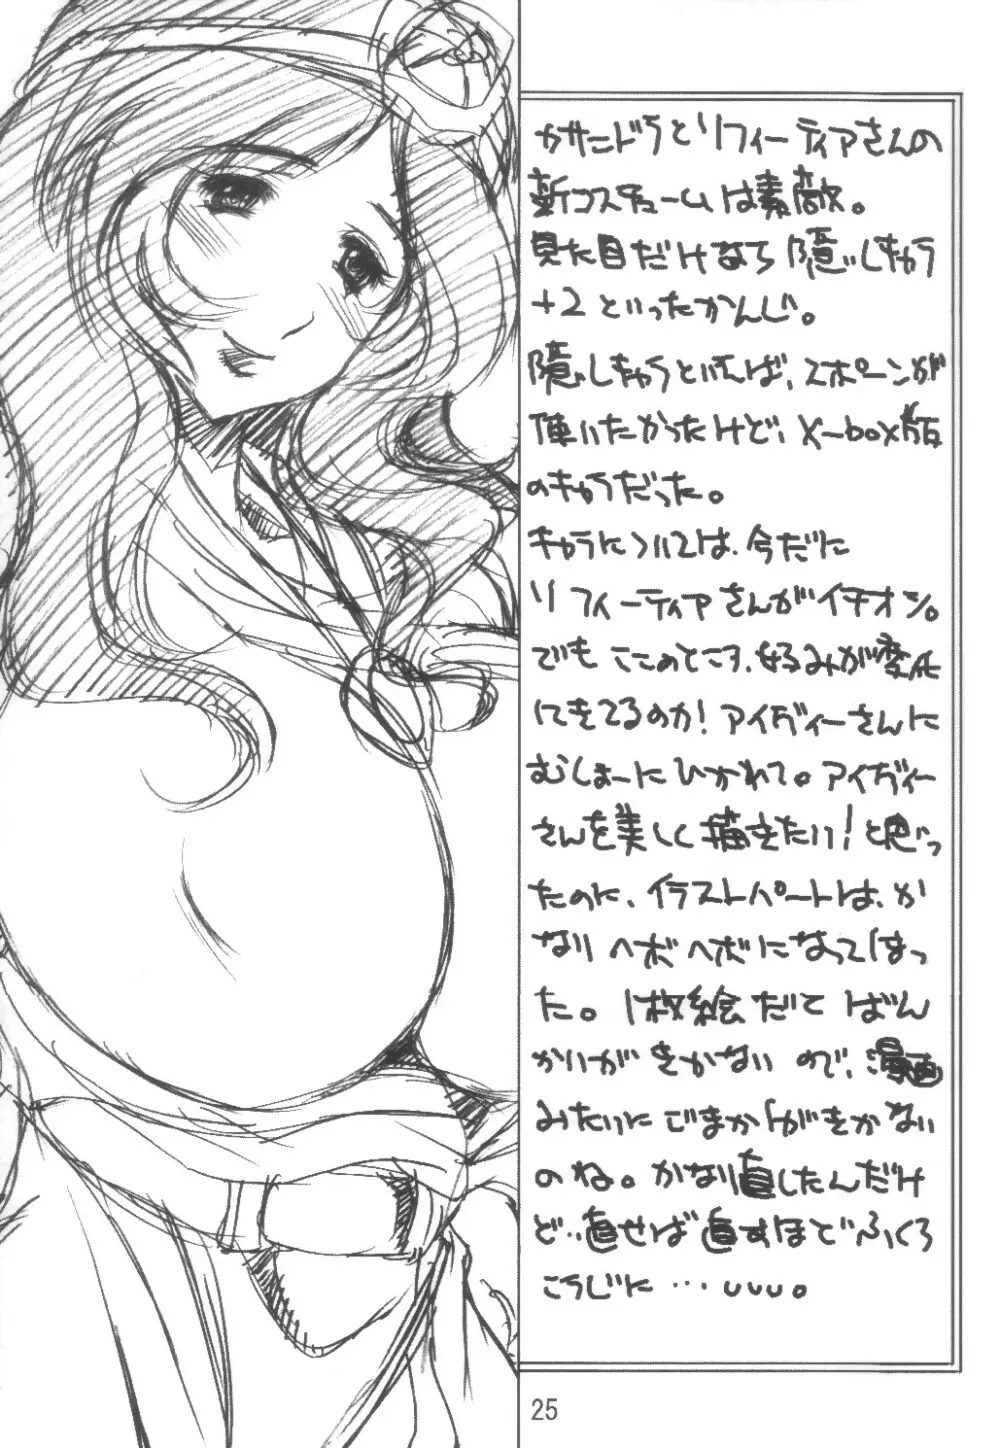 カサンドラとソフィーティアさんの
新コスチュームは素敵。
見た目だけなら隠しキャラ
+2といったかんじ。
隠しキャラといえば、スポーンが
使いたかったけど、X-box版
のキャラだった。
キャラについては、今だに
ソフィーティアさんがイチオシ。
でもここのところ、好みが変化
してきてるのか!アイヴィーさんに
むしょーにひかれて。アイヴィー
さんを美しく描きたい!と思っ
たのに、イラストパートは、か
なりヘボヘボになってしまっ
た。1枚絵だてばん
かいがきかないので、漫画
みたいにごまかしがきかない
のね。かなり直したんだけ
ど‥直せば直すほどふくろ
こうじに…uuu。
25